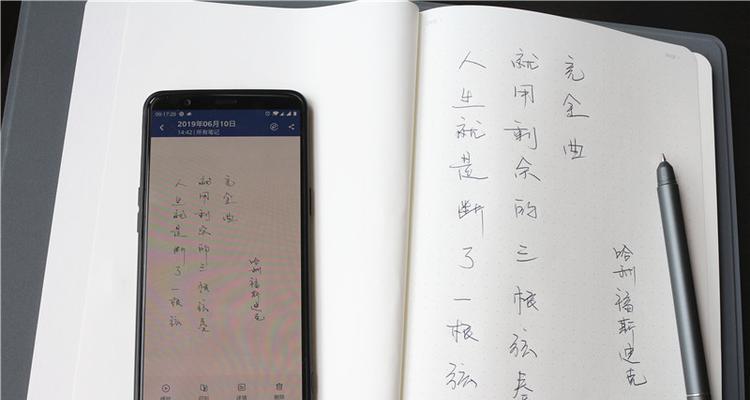 09:17:20
2019年06月10日
14:42 | 所有笔记
人生就是断了一根弦
就用剩余的三根弦奏
完全曲
哈利福斯迪克
详情
删除
人生就是断了一根弦
就用剩余的三根弦奏
完全曲
哈利福斯迪克